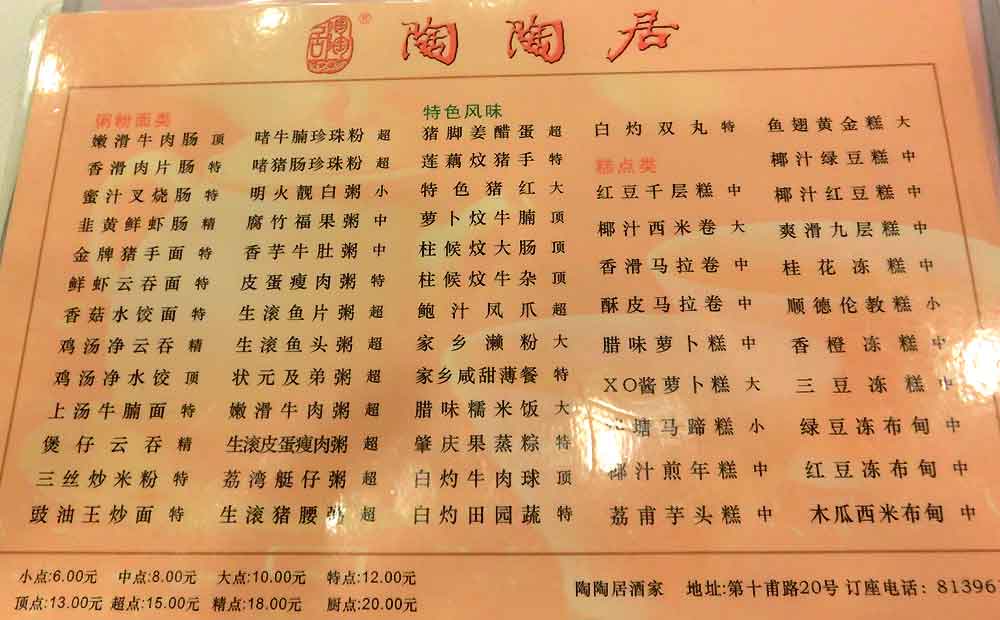 陶陶居®
陶陶居
粥粉面类
嫩滑牛肉肠 顶
香滑肉片肠 特
蜜汁叉烧肠 特
韭黄鲜虾肠 精
金牌猪手面 特
鲜虾云吞面 特
香菇水饺面 特
鸡汤净云吞 精
鸡汤净水饺 顶
上汤牛腩面 特
煲仔云吞 精
三丝炒米粉 特
豉油王炒面 特
啫牛腩珍珠粉 超
啫猪肠珍珠粉 超
明火靓白粥 小
腐竹福果粥 中
香芋牛肚粥 中
皮蛋瘦肉粥 特
生滚鱼片粥 超
生滚鱼头粥 超
状元及弟粥 超
嫩滑牛肉粥 超
生滚皮蛋瘦肉粥 超
荔湾艇仔粥 超
生滚猪腰粥 超
特色风味
猪脚姜醋蛋 超
莲藕炆猪手 特
特色猪红 大
萝卜炆牛腩 顶
柱候炆大肠 顶
柱候炆牛杂 顶
鲍汁凤爪 超
家乡濑粉 大
家乡咸甜薄餐 特
腊味糯米饭 大
肇庆果蒸粽 特
白灼牛肉球 顶
白灼田园蔬 特
白灼双丸 特
糕点类
红豆千层糕 中
椰汁西米卷 大
香滑马拉卷 中
酥皮马拉卷 中
腊味萝卜糕 中
XO酱萝卜糕 大
塘马蹄糕 小
椰汁煎年糕 中
荔甫芋头糕 中
鱼翅黄金糕 大
椰汁绿豆糕 中
椰汁红豆糕 中
爽滑九层糕 中
桂花冻糕 中
顺德伦教糕 小
香橙冻糕 中
三豆冻糕 中
绿豆冻布甸 中
红豆冻布甸 中
木瓜西米布甸 中
小点:6.00元 中点:8.00元 大点:10.00元 特点:12.00元
顶点:13.00元 超点:15.00元 精点:18.00元 厨点:20.00元
陶陶居酒家 地址:第十甫路20号 订座电话: 81396